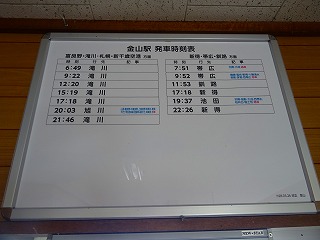 金山駅 発車時刻表
富良野・滝川・札幌・新千歳空港 方面
時刻 行先 記事
6:49 滝川
9:22 滝川
12:20 滝川
15:19 滝川
17:18 滝川
20:03 旭川
21:46 滝川
新得・帯広・釧路 方面
時刻 行先 記事
7:51 帯広
9:52 帯広
11:53 釧路
17:18 新得
19:37 池田
22:26 新得